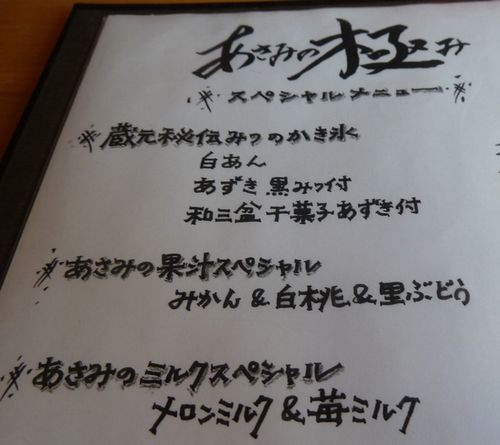 あさみの極み
スペシャルメニュー
蔵元秘伝みつのかき氷
白あん
あずき 黒みつ付
和三盆干菓子あずき付
あさみの果汁スペシャル
みかん&白桃&黒ぶどう
あさみのミルクスペシャル
メロンミルク&苺ミルク